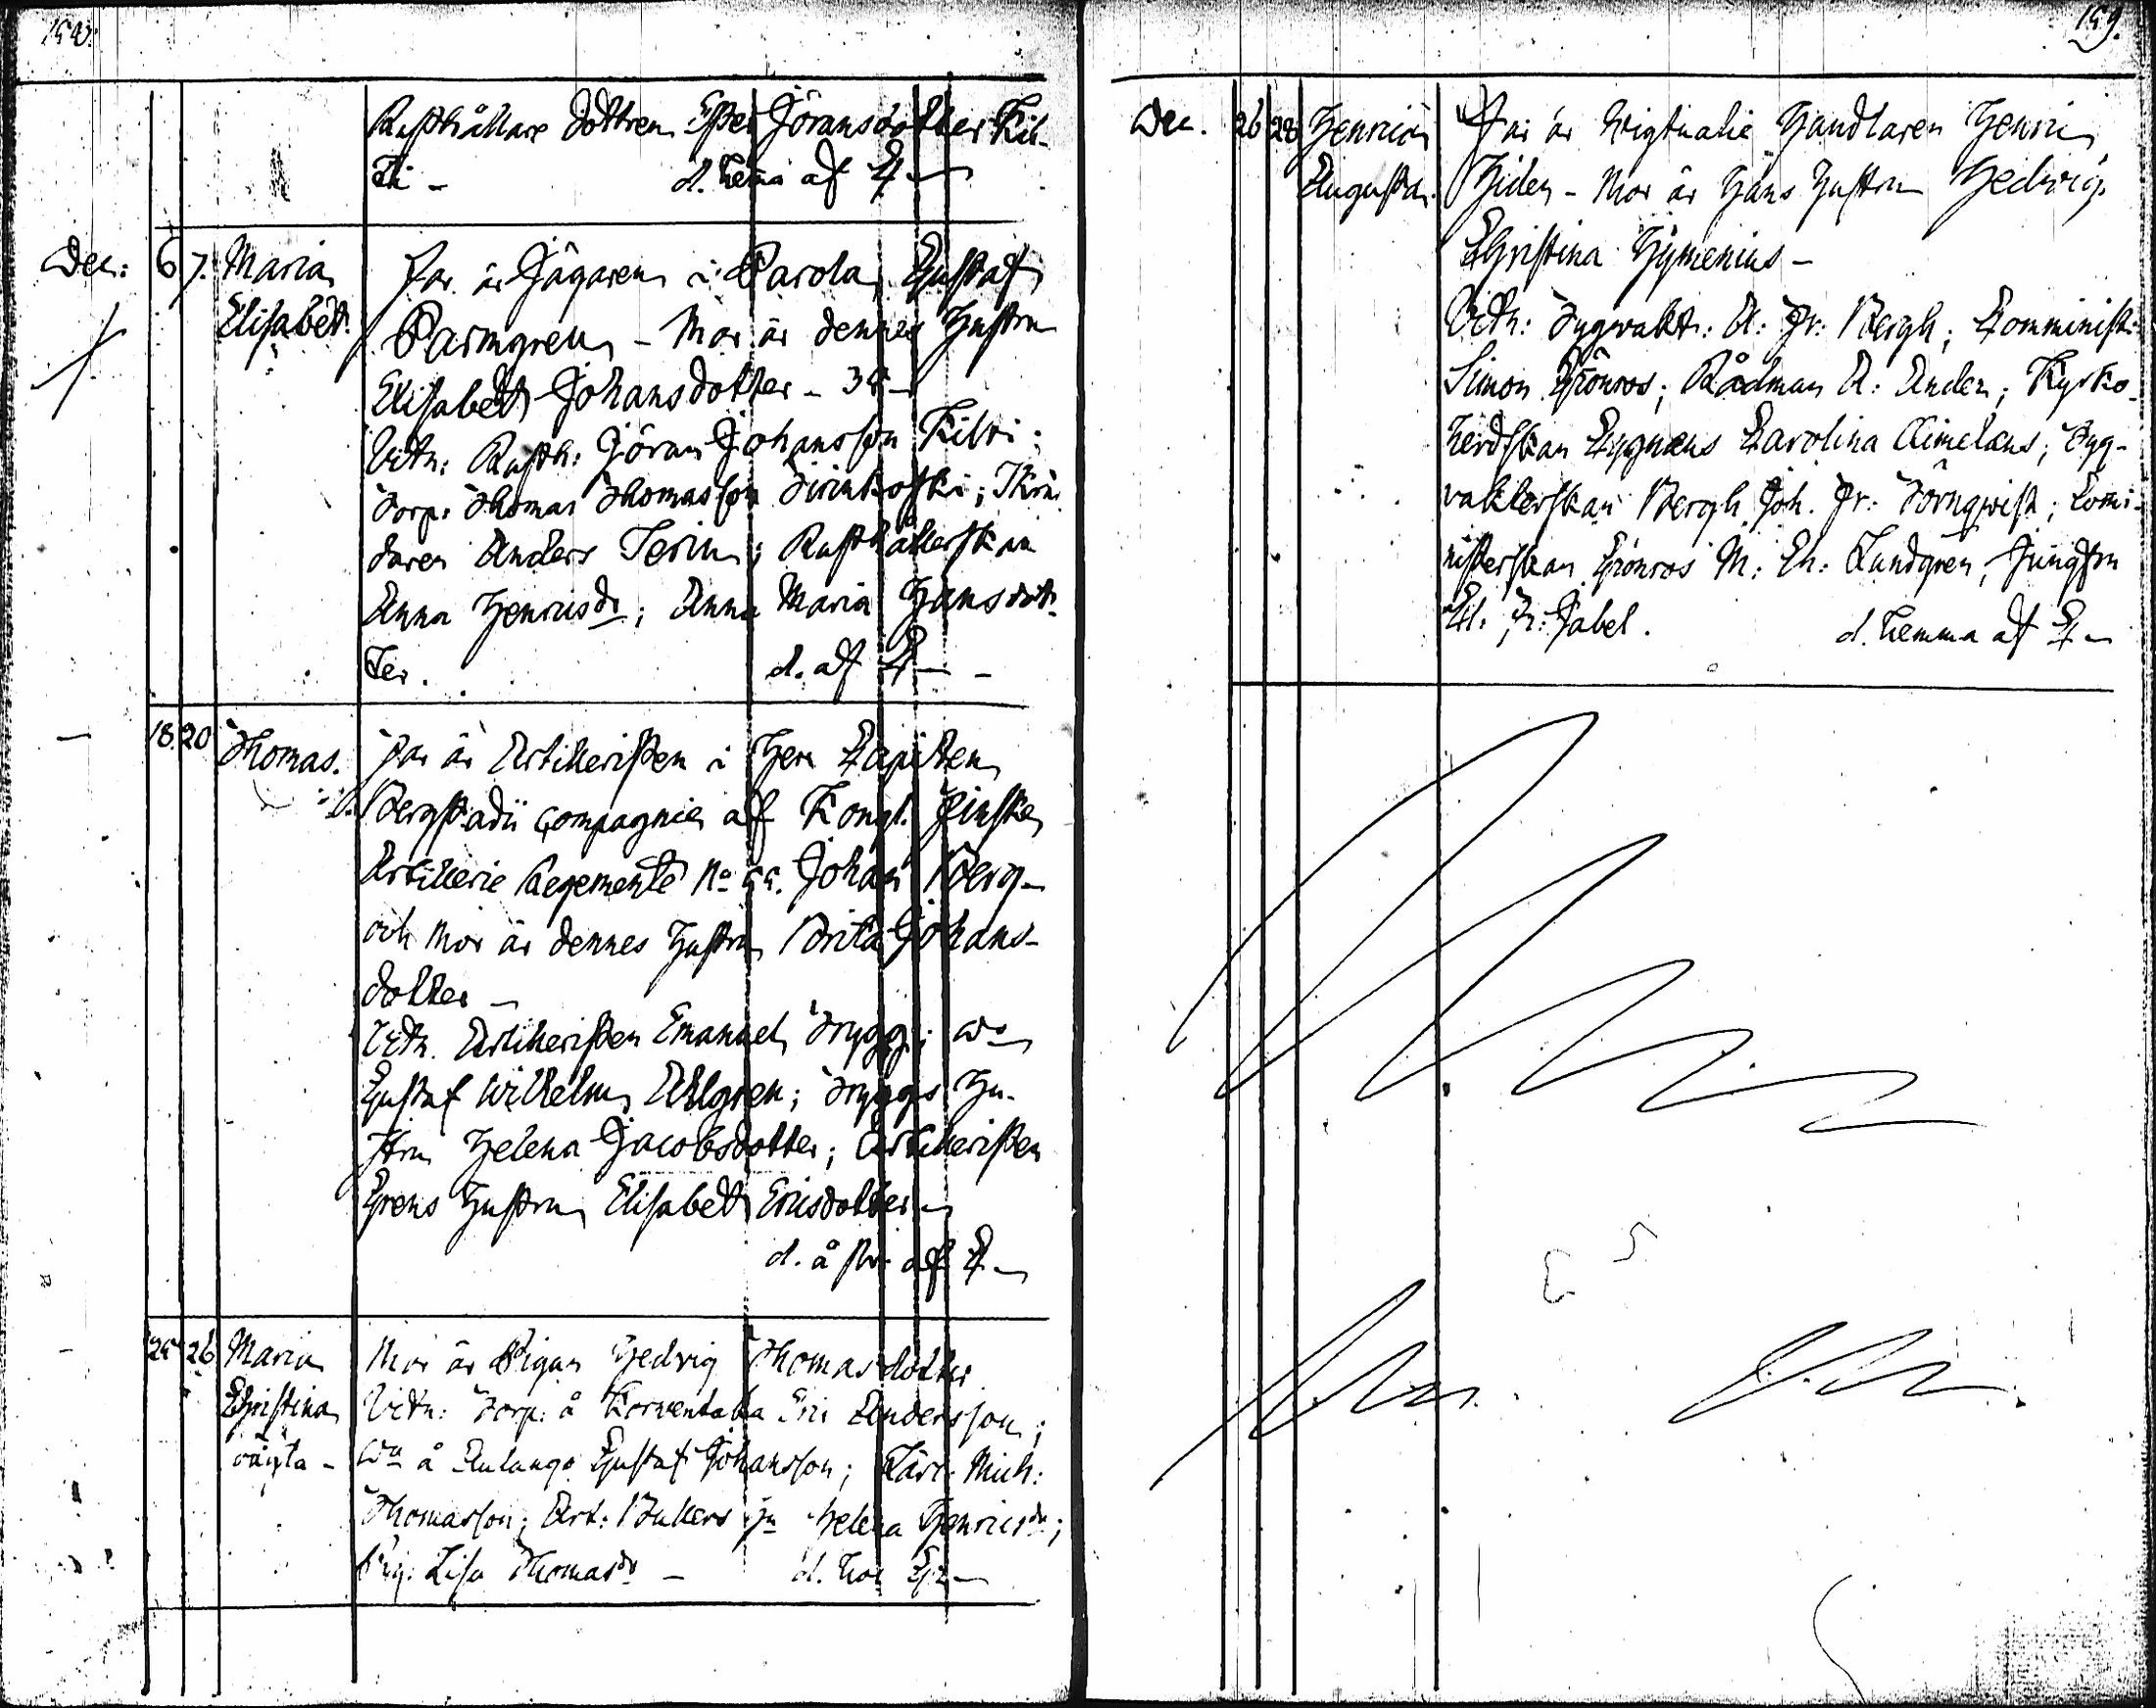 158.
Rusthållare dottren Ester Jöransdotter Kil-
ti - d. hema af Z
Dec: 6 7. Maria Far är Jägaren i Parola Gustaf
Elisabet. Parmgren - Mor är dennes Hustru
Elisabeth Johansdotter - 34 -
Vitn: Rusth: Jöran Johansson Kilvi;
Torp: Thomas Thomasson
daren Anders Terin; Rusthållerskan
Anna Henricsdr; Anna Maria Hansdot-
ter. d. af Z -
18. 20 Thomas. Far är Artilleristen i Herr Capiten
Bergstadii Compagnie af Kongl. Finska
Artillerie Regemente No 55. Johan Berg -
och Mor är dennes Hustru Brita Johans-
dotter -
Vitn. Artilleristen Emanuel Trygg; Do
Gustaf Wilhelm Ahlgren; Tryggs Hu-
stru Helena Jacobsdotter; Artilleristen
Grens Hustru Elisabeth Ericsdotter -
d. å af Z -
25 26 Maria Mor är Pigan Hedvig Thomasdotter
Christina Vitn: Torp: å Korventaka Eric Andersson;
oägta - Do å Aulango Gustaf Johansson; Mich:
Thomasson; Art: Bullers Hu Helena Henricsdr;
Pig: Lisa Thomasdr - d. hos
159.
Dec. 26 28 Henrica Far är Victualie Handlaren Henric
Augusta. Hiden - Mor är Hans Hustru Hedvig
Christina Hymenius -
Vitn: Tygvakt: A: Fr: Bergh; Comminist:
Simon Grönroos; Rådman A: Anden; Kyrko-
herdskan Cygnæus Carolina Aimelæus; Tyg-
vakterskan Bergh Joh. Fr: Törnqvist; Comi-
nisterskan Grönroos M: Ch: Lundgren; Jungfru
Fr: Fabel. d. hemma af Z -